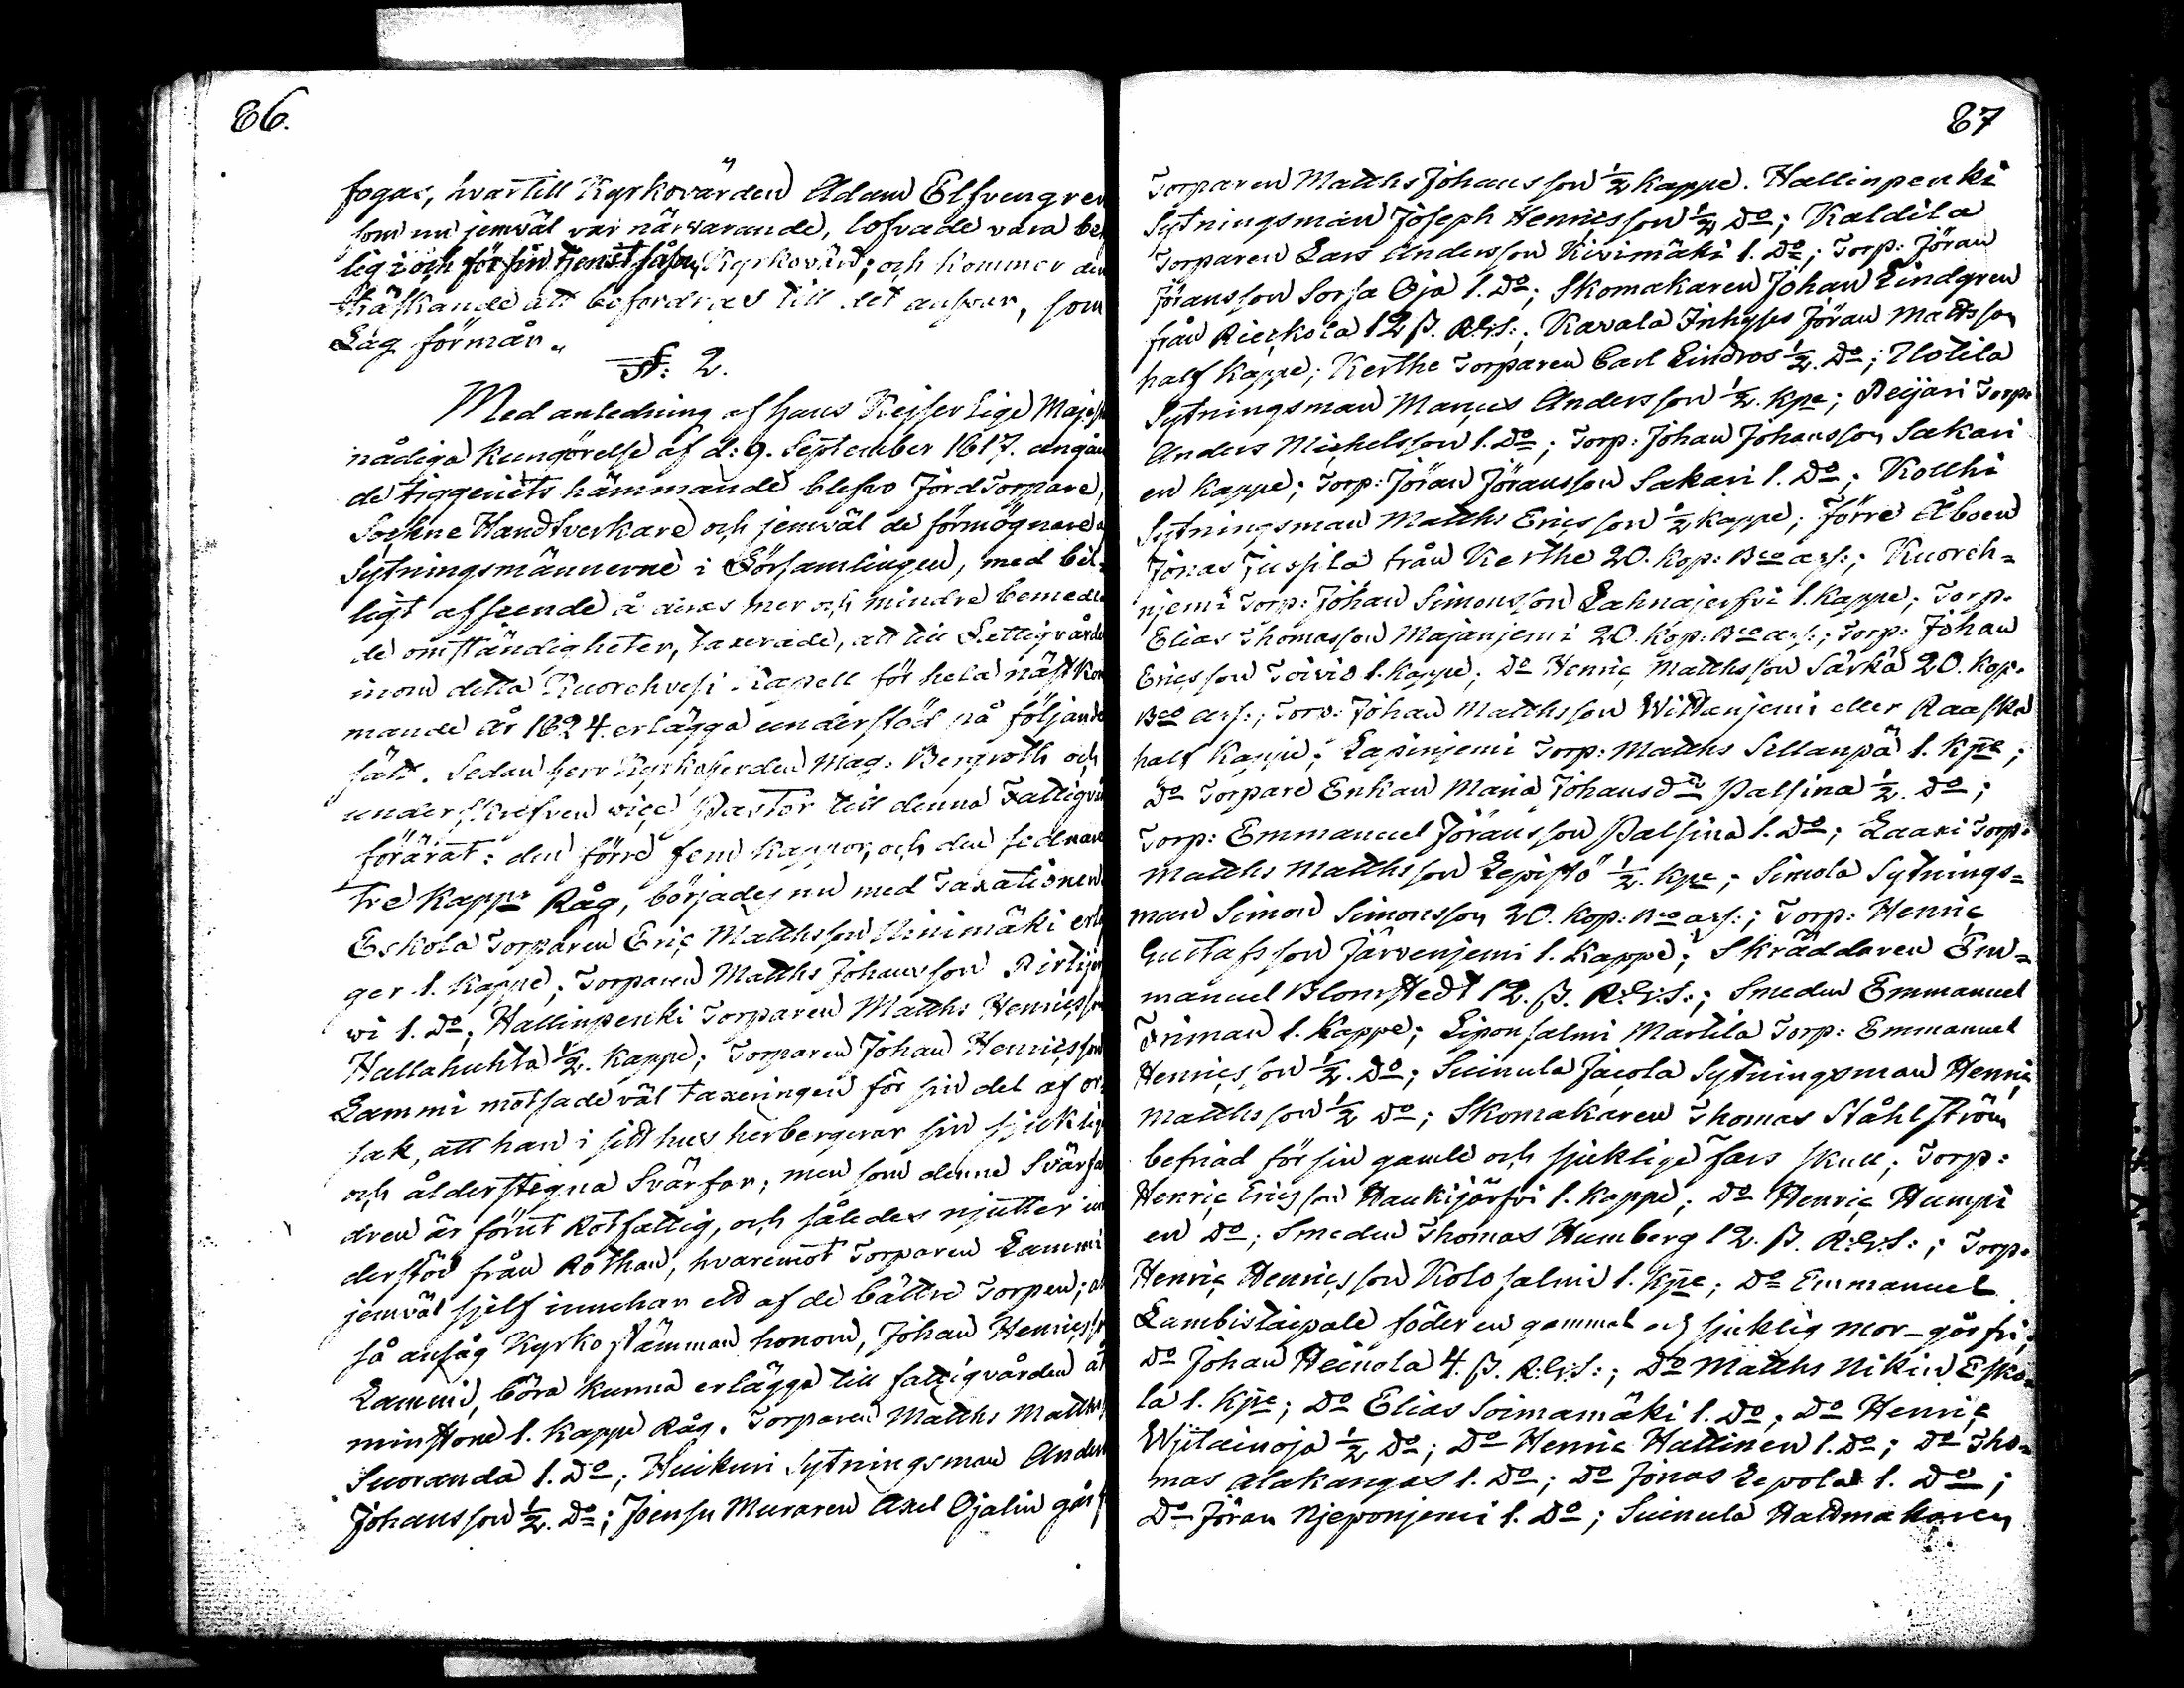 86.
fogas, hvartill Kyrkovärden Adam Elfvengren
som nu jemväl var närvarande, lofvade vara be
lig i och för sin tjenst såsom Kyrkovärd; och kommer den
träskande att befordras till det ansvar, som
Lag förmår.
§: 2.
Med anledning af Hans Kejserlige Majest
nådiga Kungörelse af d: 9. September 1817. angåen
de tiggeriets hämmande blefvo Jord Torpare,
Sockne Handtverkare och jemväl de förmögnare
Sytningsmännerne i Församlingen, med bil-
ligt afseende å deras mer och mindre bemedla
de omständigheter, taxerade, att till Fattigvården
inom detta Kuorehvesi Kapell för hela nästkom
mande år 1824. erlägga understöd på följande
sätt. Sedan herr Kyrkoherden Mag: Bergroth och
underskrefven vice Pastor till denna Fattigvå
förärat: den förre fem kappor, och den sednare
tre Kappr Råg, börjades nu med Taxationen
Eskola Torparen Eric Matthsson Niinimäki erläg
ger 1. Kappe; Torparen Matths Johansson Pirtijer
wi 1. Do; Hallinpenki Torparen Matths Henricsson
Hallahuhta ½. Kappe; Torparen Johan Henricsson
Lammi motsade väl taxeringen för sin del af or
sak, att han i sitt hus herbergerar sin sjuklige
och ålderstegna Svärfar; men som denne Svärfa
dren är förut Rotfattig, och således njutter un
derstöd från Rothan, hvaremot Torparen Lammi
jemväl sjelf innehar ett af de bättre Torpen; al
så ansåg Kyrkostämman honom, Johan Henricsson
Lammi, böra kunna erlägga till fattigvården åt
minstone 1. Kappe Råg. Torparen Matths Matths
Suoranda 1. Do; Huikuri Sytningsman Anders
Johansson ½. Do; Joensu Muraren Axel Ojalin går f
87
Torparen Matths Johansson ½ kappe. Hallinpenki
Sytningsman Joseph Henricsson ½ Do; Kaldila
Torparen Lars Andersson Kivimäki 1. Do; Torp: Jöran
Jöransson Sorsa Oja 1. Do; Skomakaren Johan Lindgren
från Rieckola 12 ß. R:G:S:; Kavala Inhyses Jöran Mattsson
half kappe; Kerthe Torparen Carl Lindroos ½. Do; Ylotila
Sytningsman Marcus Andersson ½. kpe; Reijari Torp:
Anders Michelsson 1. Do; Torp: Johan Johansson Sakari
en kappe; Torp: Jöran Jöransson Sakari 1. Do; Kollhi
Sytningsman Matths Ericsson ½ kappe; Förre Åboen
Jonas Juspila från Kerthe 20. Kop: Bco ass:; Kuoreh-
njemi Torp: Johan Simonsson Lahnajerfvi 1. Kappe; Torp.
Elias Thomasson Majanjemi 20. Kop: Bco ass:; Torp: Johan
Ericsson Toivio 1. Kappe; Do Henric Matthsson Särkä 20. Kop.
Bco ass:; Torp: Johan Matthsson Wittanjemi eller Raaska
half Kappe; Lapinjemi Torp: Matths Sillanpä 1. Kpe;
Do Torpare Enkan Maria Johansdr Palsina ½. Do;
Torp: Emmanuel Jöransson Palsina 1. Do; Laari Torp:
Matths Matthsson Lepistö ½. Kpe; Simola Sytnings-
man Simon Simonsson 20. Kop: Bco ass:; Torp: Henric
Gustafsson Järvenjemi 1. Kappe; Skräddaren Em-
manuel Blomstedt 12. ß. R:G:S:; Smeden Emmanuel
Friman 1. Kappe; Liponsalmi Martila Torp: Emmanuel
Henricsson ½. Do; Suinula Jacola Sytningsman Henric
Matthsson ½ Do; Skomakaren Thomas Ståhlström
befriad för sin gamle och sjuklige fars skull; Torp:
Henric Ericsson Haukijärfvi 1. Kappe; Do Henric Humpi
en Do; Smeden Thomas Humberg 12. ß. R:G:S:; Torp.
Henric Henricsson Kolosalmi 1. Kpe; Do Emmanuel
Lambistaipale föder en gammal och sjuklig mor - går fri;
Do Johan Heinola 4. ß. R:G:S:; Do Matths Nikin Esko-
la 1. Kpe; Do Elias Soimamäki 1. Do; Do Henric
Wijtainoja ½ Do; Do Henric Hattinen 1. Do; Do Tho-
mas Alakangas 1. Do; Do Jonas Lepola 1. Do;
Do Jöran Njeponjemi 1. Do; Suinula Hattmakaren